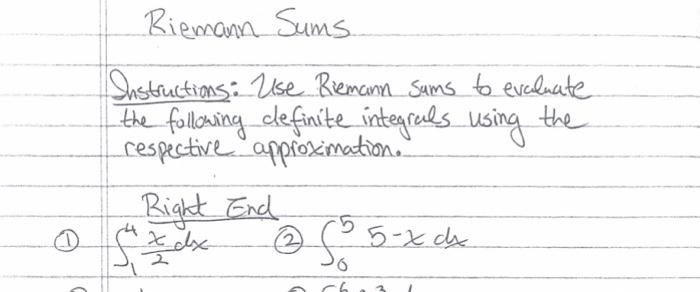 Riemann Sums
Instructions: Use Riemann sums to evaluate
the following definite integrals using the
respective approximation.
Right End
① ∫₁⁴ x/2 dx ② ∫₀⁵ 5-x dx